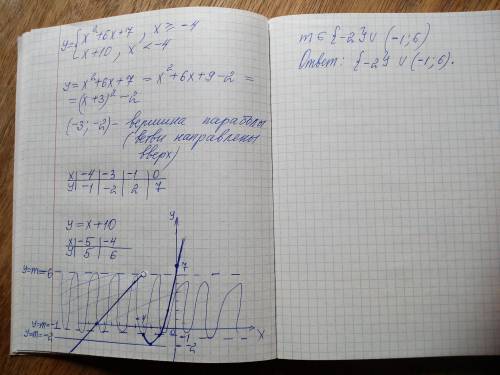 y={x²+6x+7, x ≥ -4
x+10, x < -4
y=x²+6x+7 = x²+6x+9-2 =
=(x+3)²-2
(-3; -2)- вершина параболы
(ветви направлены
вверх)
x -4 -3 -1 0
y -1 -2 2 7
y=x+10
x -5 -4
y 5 6
y
7
y=m=6
-4
y=m=-1
y=m=-2
-1
-2
x
m∈{-2}∪(-1;6)
Ответ: {-2}∪(-1;6).